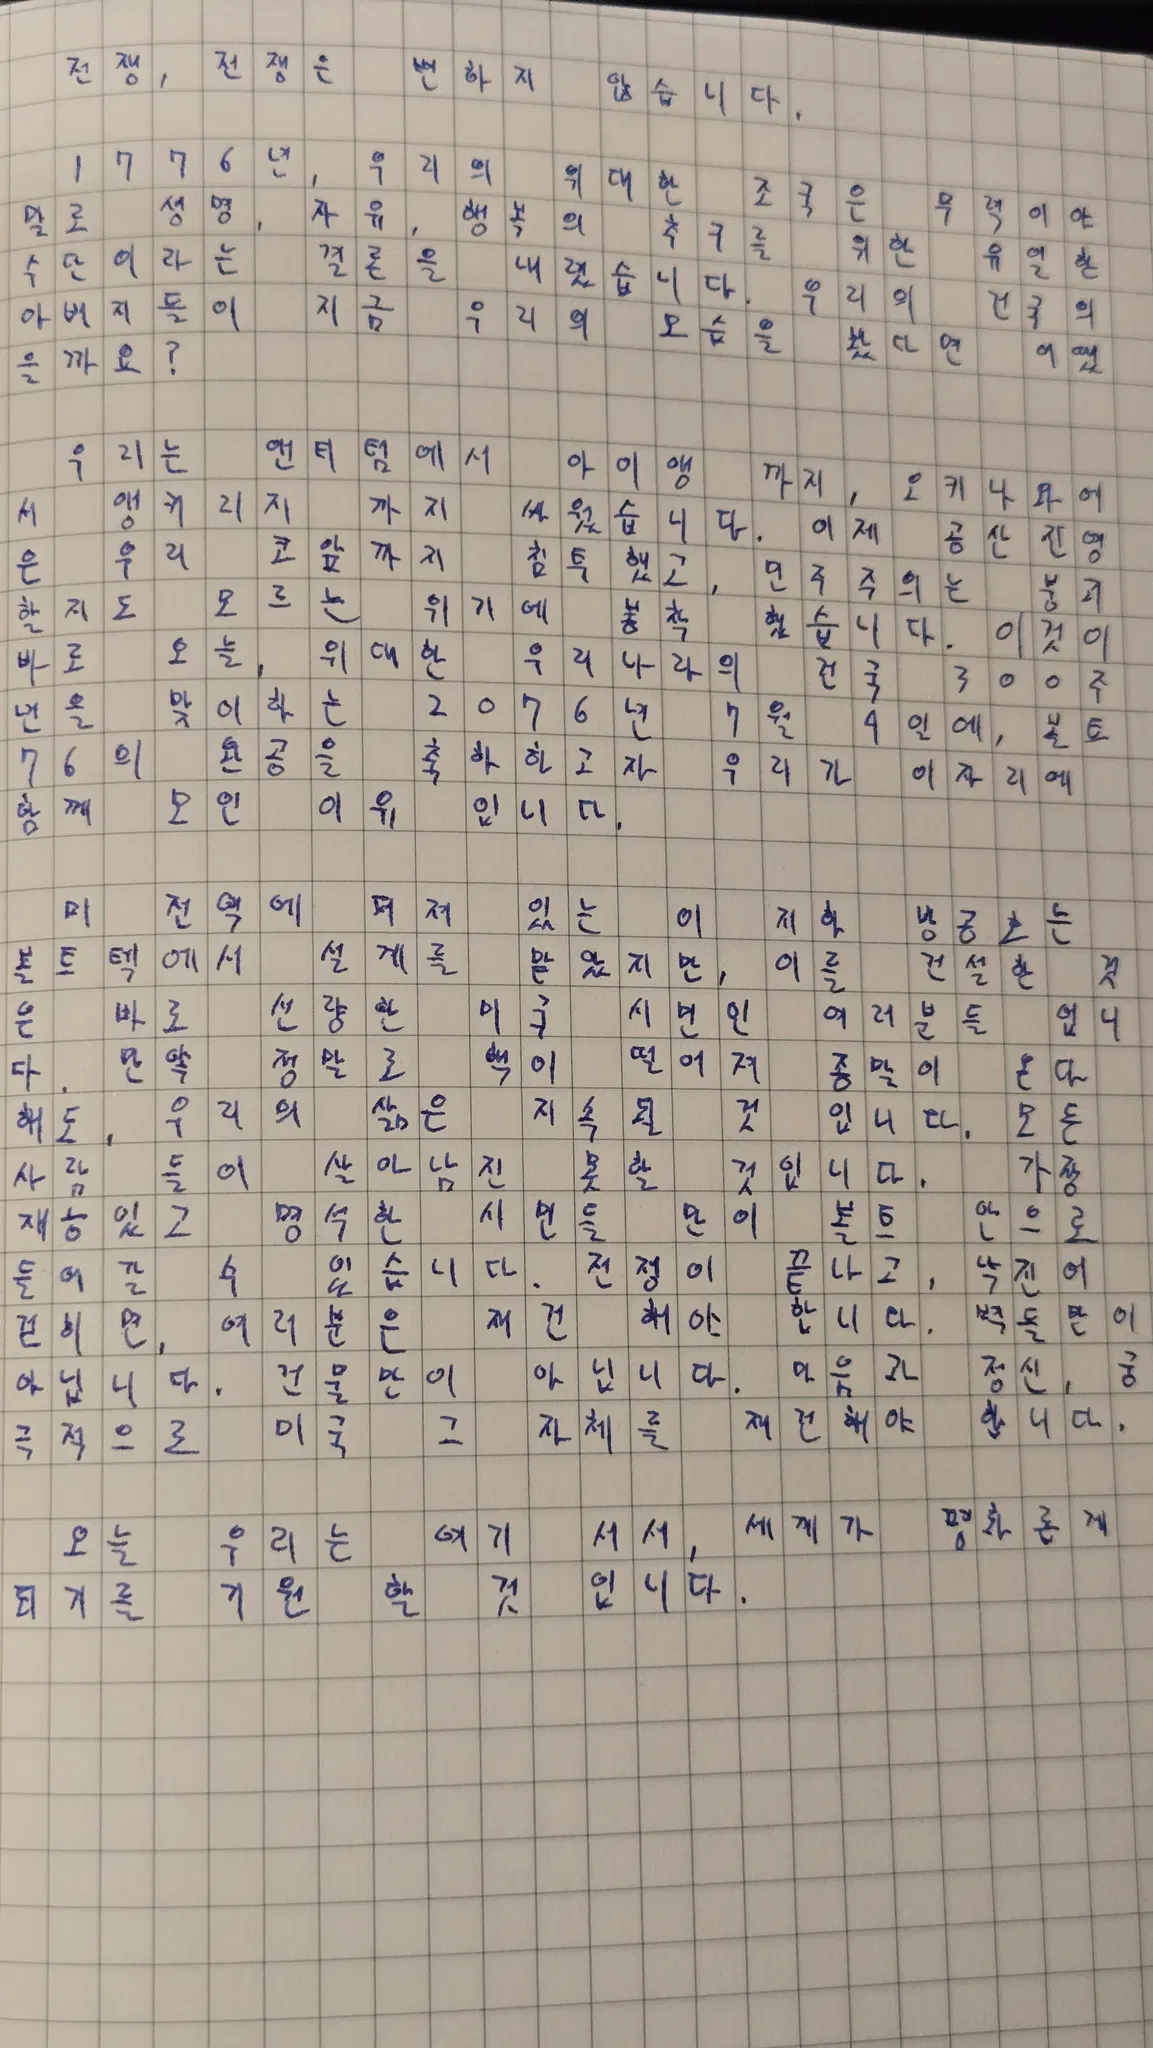 전쟁, 전쟁은 변하지 않습니다.
1776년, 우리의 위대한 조국은 무력이야
말로 생명, 자유, 행복의 추구를 위한 유일한
수단이라는 결론을 내렸습니다. 우리의 건국의
아버지들이 지금 우리의 모습을 봤다면 어땠
을까요?
우리는 앤티텀에서 아이앵 까지, 오키나와에
서 앵커리지 까지 싸웠습니다. 이제 공산진영
은 우리 코앞까지 침투했고, 민주주의는 붕괴
할지도 모르는 위기에 봉착 했습니다. 이것이
바로 오늘, 위대한 우리나라의 건국 300주
년을 맞이하는 2076년 7월 4일에, 볼트
76의 완공을 축하하고자 우리가 이자리에
함께 모인 이유 입니다.
미 전역에 퍼져 있는 이 지하 방공호는
볼트텍에서 설계를 맡았지만, 이를 건설한 것
은 바로 선량한 미국 시민인 여러분들 입니
다. 만약 정말로 핵이 떨어져 종말이 온다
해도, 우리의 삶은 지속될 것 입니다. 모든
사람 들이 살아남진 못할 것입니다. 가장
재능있고 명석한 시민들 만이 볼트 안으로
들어갈 수 있습니다. 전쟁이 끝나고, 낙진이
걷히면, 여러분은 재건 해야 합니다. 벽돌만이
아닙니다. 건물만이 아닙니다. 마음과 정신, 궁
극적으로 미국 그 자체를 재건해야 합니다.
오늘 우리는 여기 서서, 세계가 평화롭게
되기를 기원 할 것 입니다.